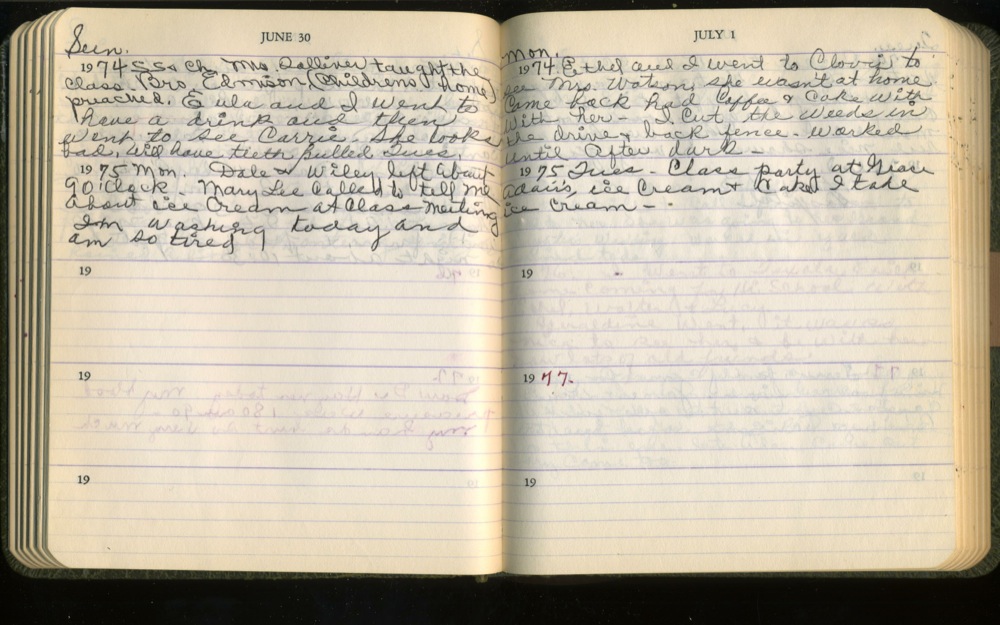 JUNE 30
Sun.
1974 SS & Ch. Mrs. Dolliver taught the
class. Bro. Edmison (Childrens Home)
preached. Eula and I went to
have a drink and then
went to see Carrie. She looks
bad, will have teeth pulled Tues.
1975 Mon. Dale & Wiley left about
9 O'clock. Mary Lee called to tell me
about ice cream at Class Meeting
I'm washing today and
am so tired
19
19
19
JULY 1
Mon.
1974 Ethel and I went to Clovis to
see Mrs. Watson, she wasn't at home
Came back had Coffee & Cake with
with her - I cut the weeds in
the drive & back fence. Worked
until after dark -
1975 Tues - Class party at
Adairs, ice cream & cake I take
ice cream -
19
1977.
19